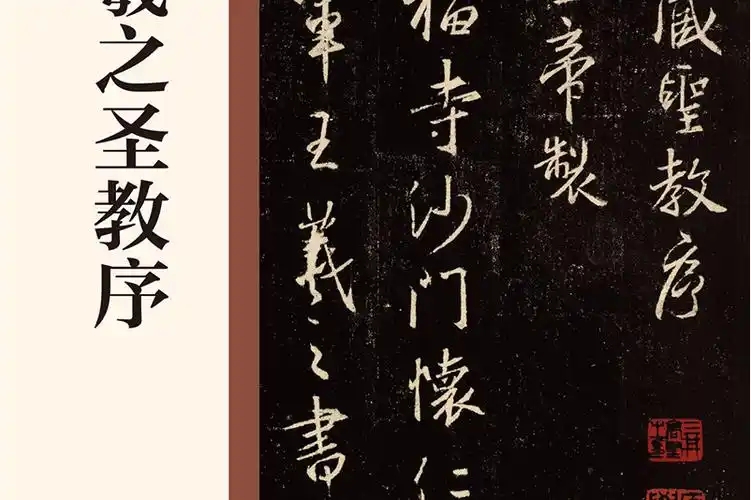 羲之圣教序
藏聖教序
帝製
福寺沙門懷仁
軍王羲之書